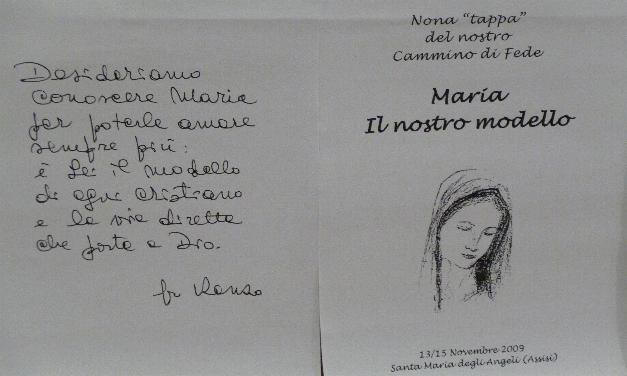 Desideriamo
conoscere Maria
per poterle amare
sempre più:
è Lei il modello
di ogni cristiano
e la via diretta
che porta a Dio.
fr
Nona "tappa"
del nostro
Cammino di Fede
Maria
Il nostro modello
13/15 Novembre 2009
Santa Maria degli Angeli (Assisi)